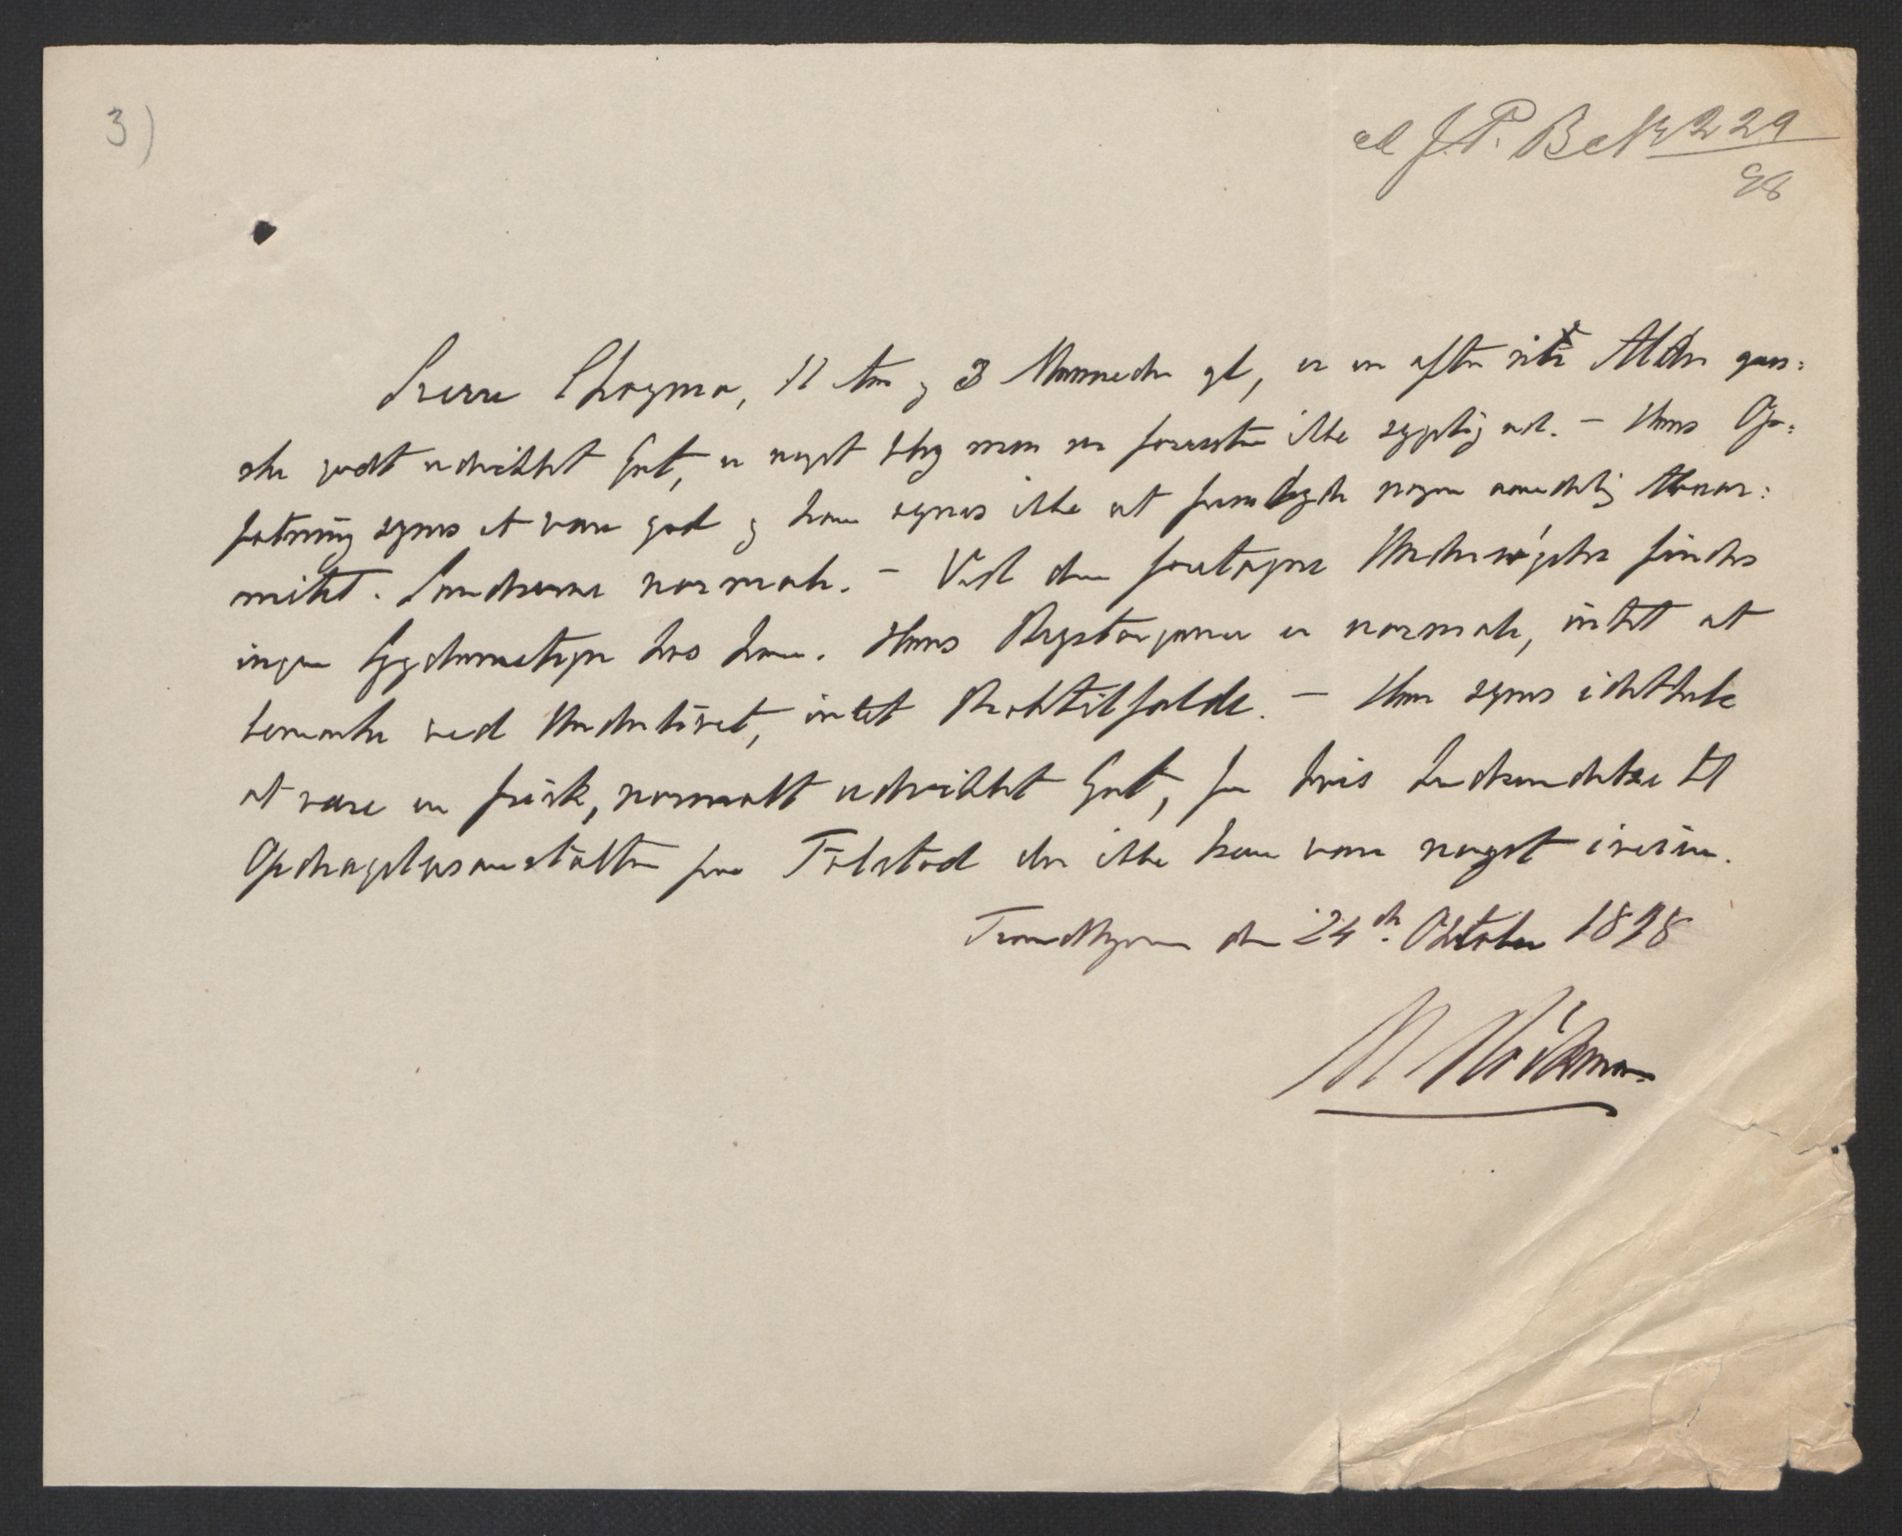 3)
ad J. P. B. No 229
98
Sverre Skogmo, 11 Aar og 3 Maaneder gl, er en efter sin Alder gan:
ske godt udviklet Gut, er noget bleg men ser forresten ikke sygelig ud. – Hans Op:
fatning synes at være god og han synes ikke at frembyde nogen aandelig Abnor:
mitet. Sandserne normale. – Ved den foretagne Undersøgelse findes
ingen Sygdomstegn hos ham. Hans Brystorganer er normale, intet at
bemærke ved Underlivet, intet Broktilfælde. – Han synes i det hele
at være en frisk, normalt udviklet Gut, for hvis Indsendelse til
Opdragelsesanstalten paa Falstad der ikke kan være noget iveien.
Trondhjem den 24de Oktober 1898